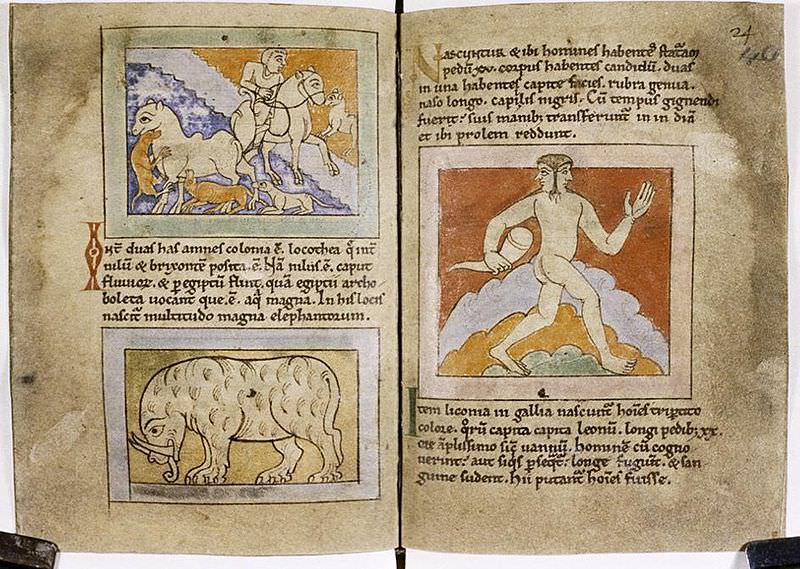 Int̄ duas has amnes colonia ē. locothea q̄ int̄
nilū & brixontē posita. ē. Nā nilus. ē. caput
fluuioꝝ. & ꝑ egiptū fluit, quā egiptii archo
boleta uocant que. ē. aq̄ magna. In his locis
nascit̄ multitudo magna elephantorum.
24
Nascuntur & ibi homines habentes staturam
pedū .xv. corpus habentes candidū. duas
in una habentes capite facies. rubra genua.
naso longo. capilis nigris. Cū tempus gignendi
fuerit: suis manibꝰ transferunt̄ in in diā
et ibi prolem reddunt.
Item liconia in gallia nascunt̄ hoīes tripertito
colore. qͦrū capita capita leonū. longi pedibꝰ .xx.
ore āplissimo sic̄ uannū. Hominē cū cogno
uerint: aut siq̄s ꝑseq̄t̄. longe fugiunt̄. & san
guine sudent. Hii putant̄ hoīes fuisse.